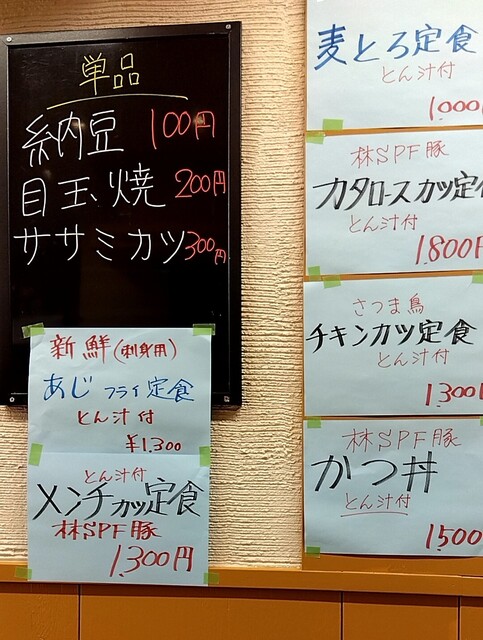 単品
納豆 100円
目玉焼 200円
ササミカツ 300円
新鮮(刺身用)
あじフライ定食
とん汁付
¥1,300
とん汁付
メンチカツ定食
林SPF豚
1,300円
麦とろ定食
とん汁付
1,000
林SPF豚
カタロースカツ定
とん汁付
1,800円
さつま鳥
チキンカツ定食
とん汁付
1,300
林SPF豚
かつ丼
とん汁付
1,500